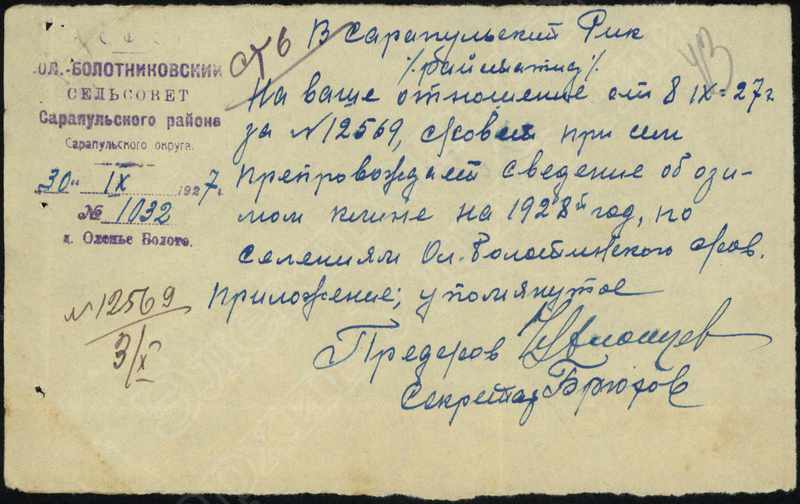 С Ф
ОЛ.-БОЛОТНИКОВСКИЙ
СЕЛЬСОВЕТ
Сарапульского района
Сарапульского округа.
30" IX 1927г.
№ 1032
д. Оленье Болото.
N12569
3/X
43
В Сарапульский Рик
На ваше отношение от 8 IX-27г
за N12569, с/совет при сем
препровождает сведение об ози-
мом клине на 1928й год, по
селениям Ол. Болотинского с/сов.
Приложение; упомянутое
Предсров
Секретар Брюхов